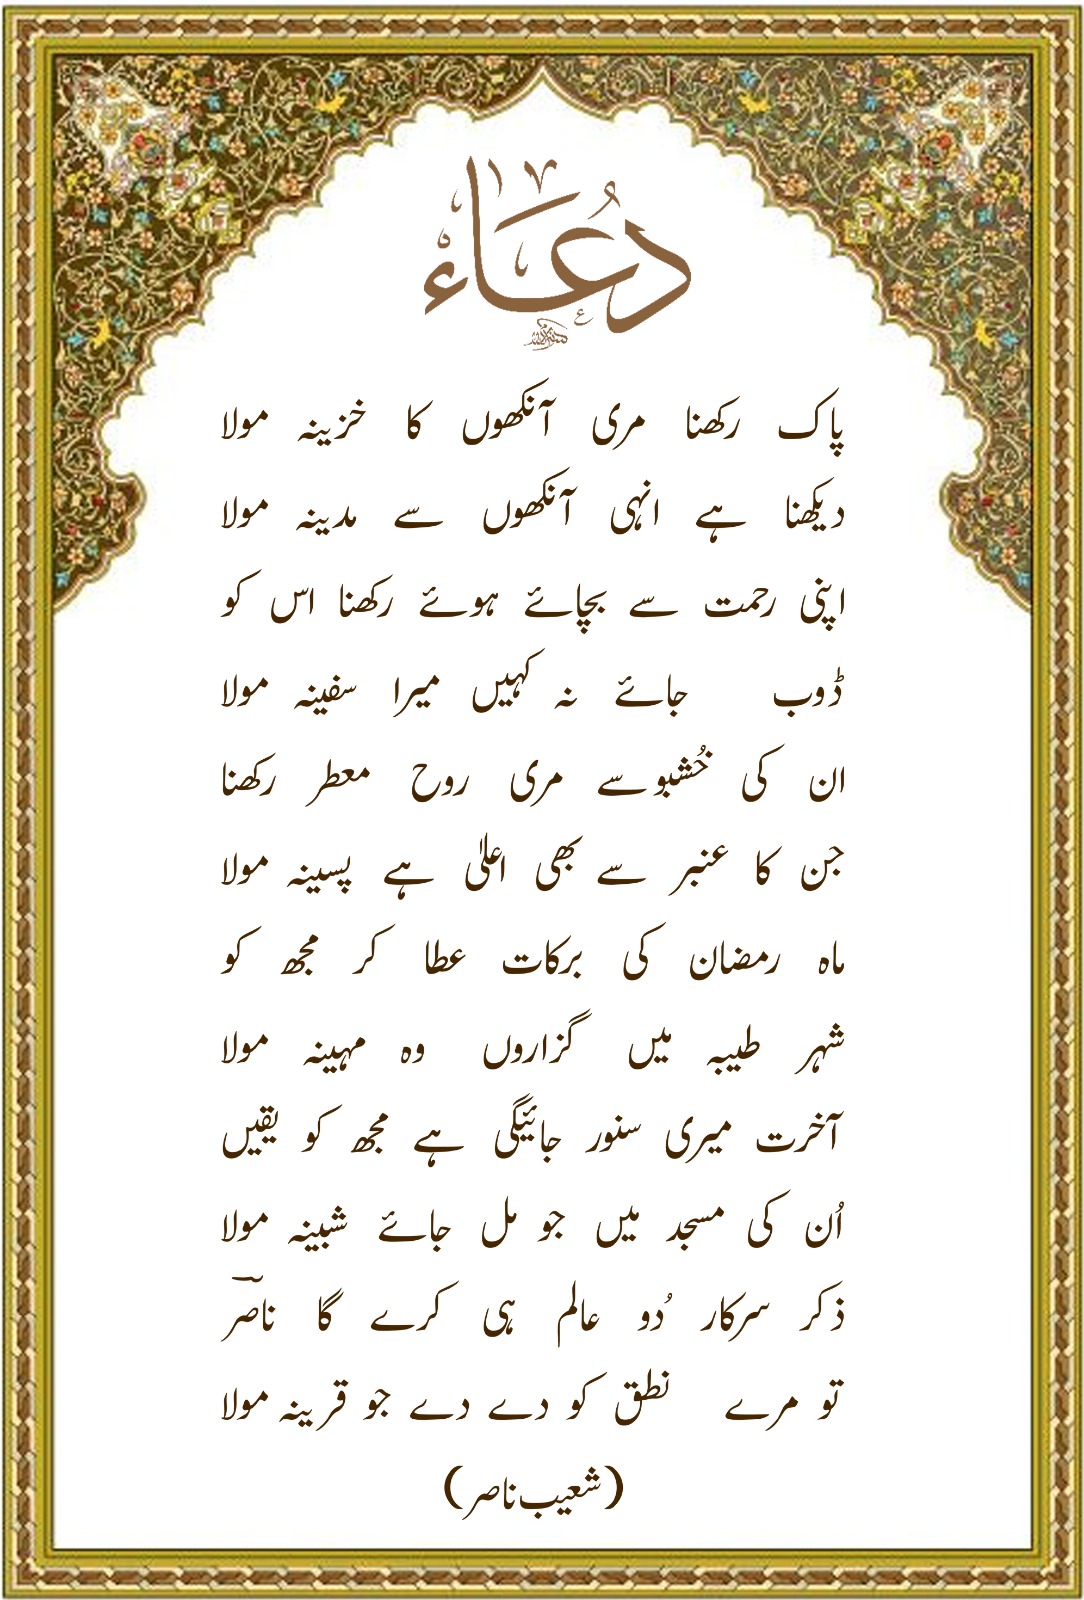 دُعَاء
پاک رکھنا مری آنکھوں کا خزینہ مولا
دیکھنا ہے انہی آنکھوں سے مدینہ مولا
اپنی رحمت سے بچائے ہوئے رکھنا اس کو
ڈوب جائے نہ کہیں میرا سفینہ مولا
ان کی خُشبو سے مری روح معطر رکھنا
جن کا عنبر سے بھی اعلیٰ ہے پسینہ مولا
ماہ رمضان کی برکات عطا کر مجھ کو
شہر طیبہ میں گزاروں وہ مہینہ مولا
آخرت میری سنور جائیگی ہے مجھ کو یقیں
اُن کی مسجد میں جو مل جائے شبینہ مولا
ذکر سرکار دُو عالم ہی کرے گا ناصرؔ
تو مرے نطق کو دے دے جو قرینہ مولا
(شعیب ناصر)